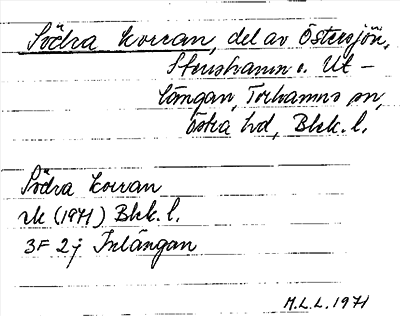 Södra Korran, del av Östersjön,
Stenshamn o. Ut-
längan, Torhamns sn,
Östra hd, Blek. l.
Södra Korran
rk (1971) Blek. l.
3F 2j Inlängan
M.L.L. 1971